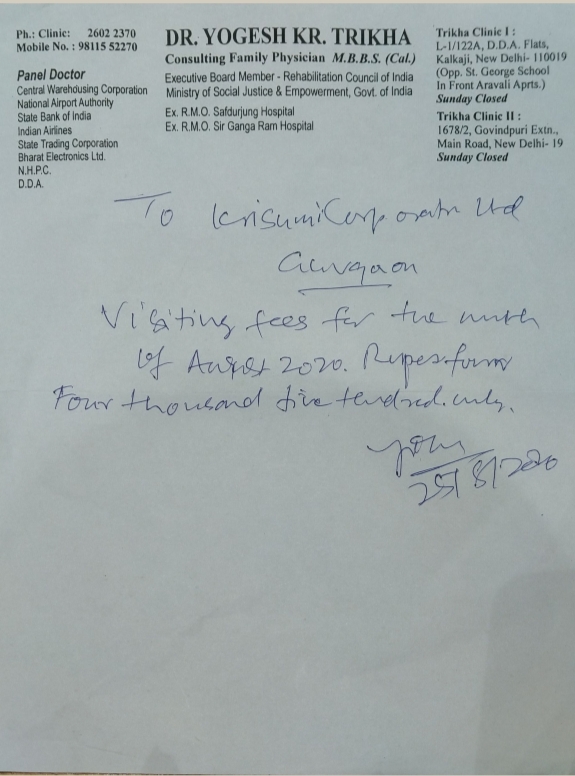 Ph.: Clinic: 2602 2370
Mobile No. : 98115 52270
Panel Doctor
Central Warehousing Corporation
National Airport Authority
State Bank of India
Indian Airlines
State Trading Corporation
Bharat Electronics Ltd.
N.H.P.C.
D.D.A.
DR. YOGESH KR. TRIKHA
Consulting Family Physician M.B.B.S. (Cal.)
Executive Board Member - Rehabilitation Council of India
Ministry of Social Justice & Empowerment, Govt. of India
Ex. R.M.O. Safdurjung Hospital
Ex. R.M.O. Sir Ganga Ram Hospital
Trikha Clinic I :
L-1/122A, D.D.A. Flats,
Kalkaji, New Delhi- 110019
(Opp. St. George School
In Front Aravali Aprts.)
Sunday Closed
Trikha Clinic II :
1678/2, Govindpuri Extn.,
Main Road, New Delhi- 19
Sunday Closed
To Krisumi Corporatn Ltd
Gurgaon
Visiting fees for the month
of August 2020. Rupees
Four thousand five hundred only.
25/8/2020